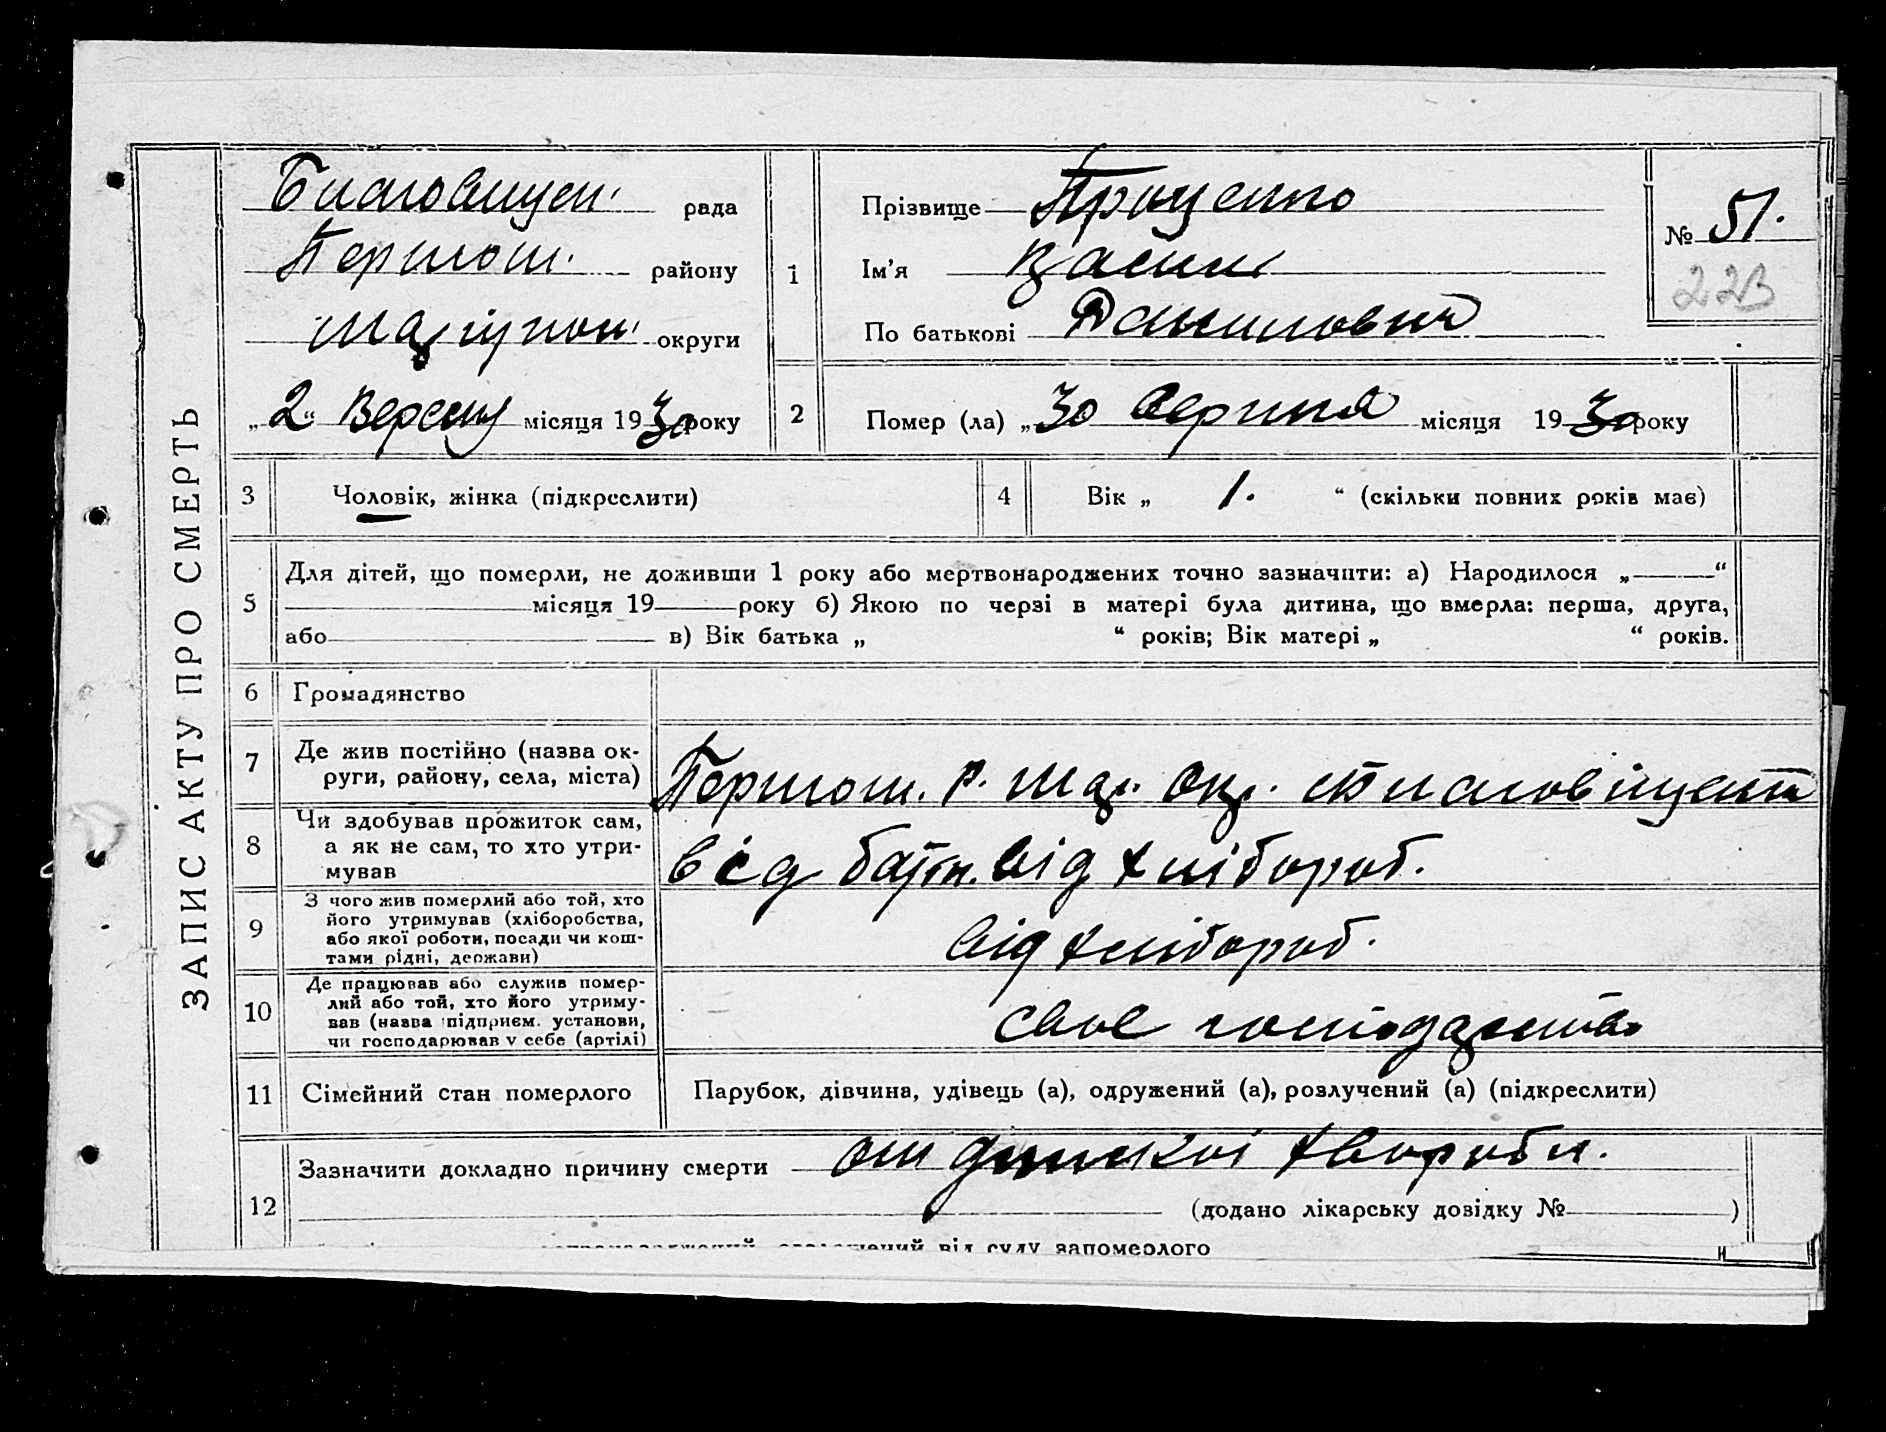 ЗАПИС АКТУ ПРО СМЕРТЬ
Благовищен. рада
Першош. району
Маріупол. округи
„2" Вересня місяця 1930 року
1
Прізвище Проценко
Ім'я
По батькові Данилович
№ 51.
223
2
Помер (ла) „30 Серпня місяця 1930 року
3
Чоловік, жінка (підкреслити)
4
Вік „ 1. " (скільки повних років має)
5
Для дітей, що померли, не доживши 1 року або мертвонароджених точно зазначити: а) Народилося „ "
місяця 19 року б) Якою по черзі в матері була дитина, що вмерла: перша, друга,
або в) Вік батька „ " років; Вік матері „ " років.
6
Громадянство
7
Де жив постійно (назва ок-
руги, району, села, міста)
Першош. р. Мар. окр. Благовіщен
8
Чи здобував прожиток сам,
а як не сам, то хто утри-
мував
від батьк. від хлібороб.
9
З чого жив померлий або той, хто
його утримував (хліборобства,
або якої роботи, посади чи кош-
тами рідні, держави)
від хлібороб.
10
Де працював або служив помер-
лий або той, хто його утриму-
вав (назва підприєм. установи,
чи господарював у себе (артілі)
своє господарство
11
Сімейний стан померлого
Парубок, дівчина, удівець (а), одружений (а), розлучений (а) (підкреслити)
12
Зазначити докладно причину смерти от дитской хвороби.
(додано лікарську довідку № )
від суду запомерлого